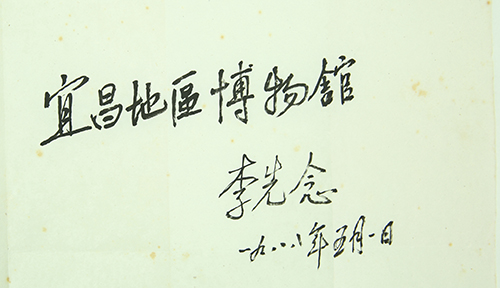 宜昌地區博物館
李先念
一九八八年五月一日